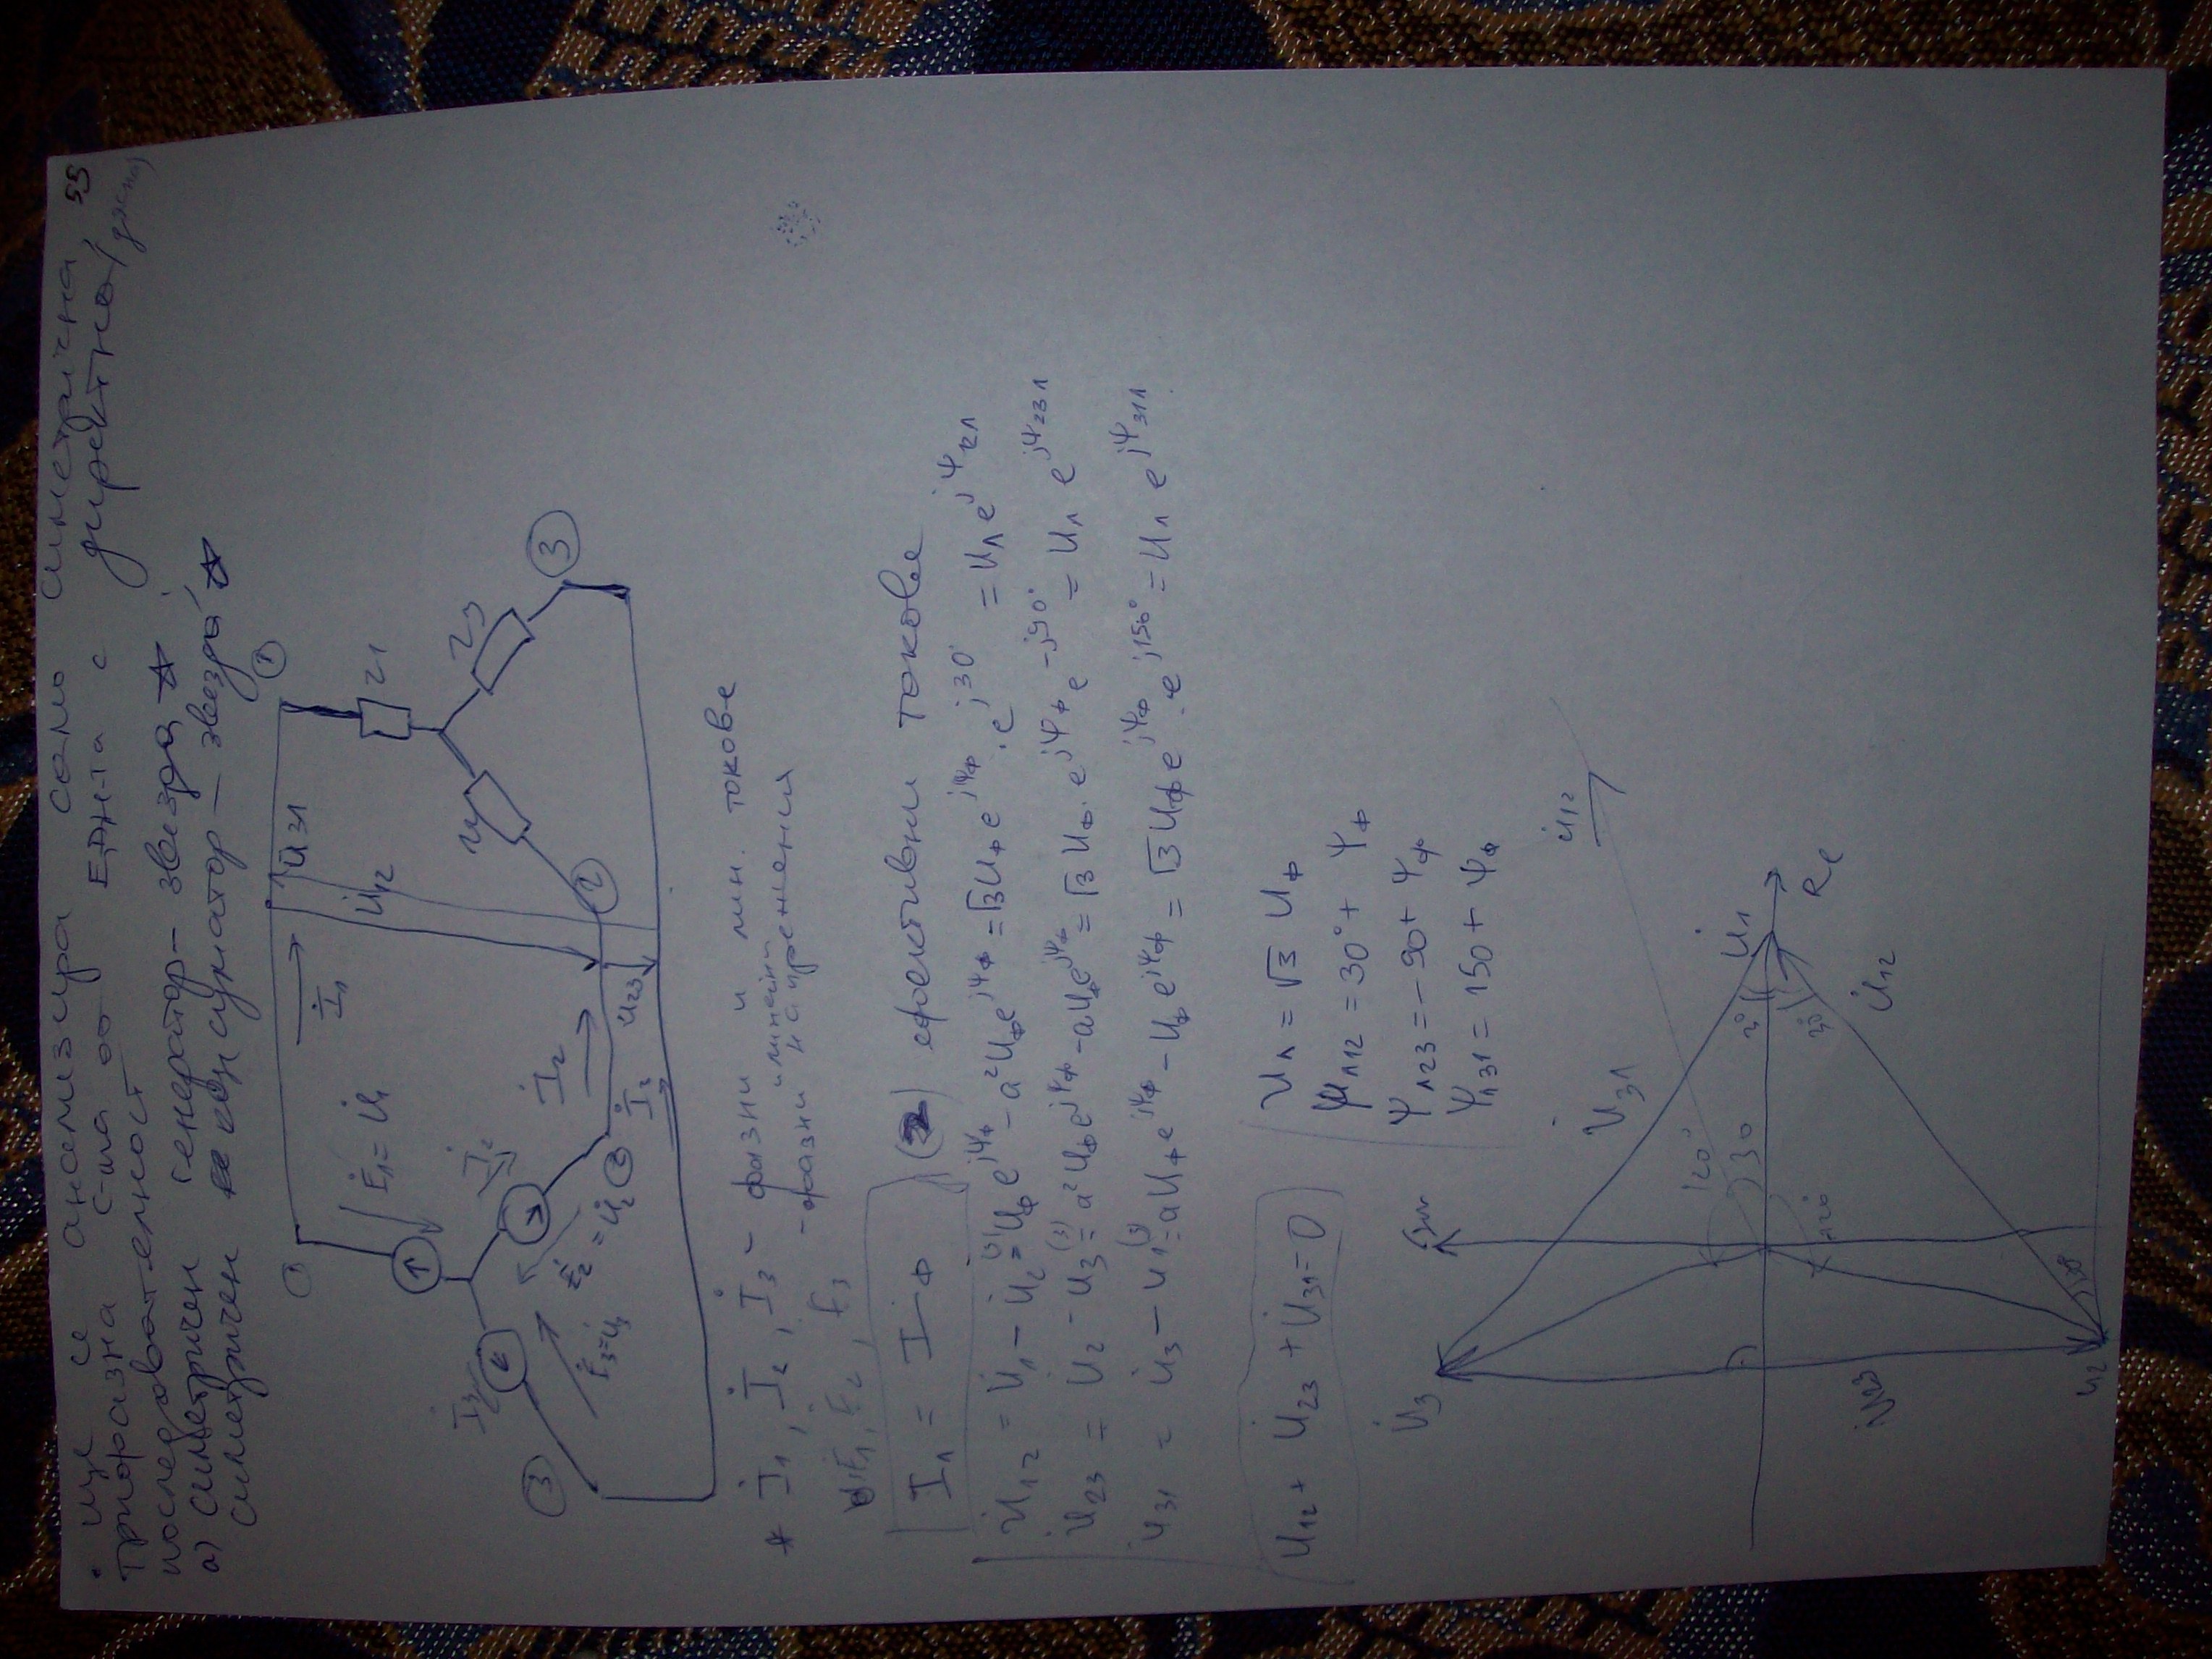 • ще се анализира само симетрична, 55
трифазна с-ма от ЕДН-та с директна (дясна)
последователност
а) симетричен генератор – звезда ☆
симетричен консуматор – звезда ☆
① ①
İ₁ U̇₃₁
U̇₁₂ Z₁
Ė₁ = U̇₁
Z₃
③
İ₂
İ₃ ②
Ė₂ = U̇₂
Ė₃ = U̇₃
U̇₂₃
③
* İ₁, İ₂, İ₃ – фазни и лин. токове
Ė₁, Ė₂, Ė₃ – фазни и линейни напрежения
Iл = Iф (2) ефективни токове
U̇₁₂ = U̇₁ – U̇₂ = Uф e^jψф – a² Uф e^jψф = √3 Uф e^jψф . e^j30° = Uл e^jψ12л
U̇₂₃ = U̇₂ – U̇₃ = a² Uф e^jψф – a Uф e^jψф = √3 Uф . e^jψф e^-j90° = Uл e^jψ23л
U̇₃₁ = U̇₃ – U̇₁ = a Uф e^jψф – Uф e^jψф = √3 Uф e^jψф . e^j150° = Uл e^jψ31л
U̇₁₂ + U̇₂₃ + U̇₃₁ = 0
Uл = √3 Uф
ψл12 = 30° + ψф
ψл23 = –90 + ψф
ψл31 = 150 + ψф
U̇₃ Jm U̇₃₁ U̇₁₂
120° 30 30° U̇₁
Re
120 30°
U̇₂₃ U̇₁₂
U̇₂